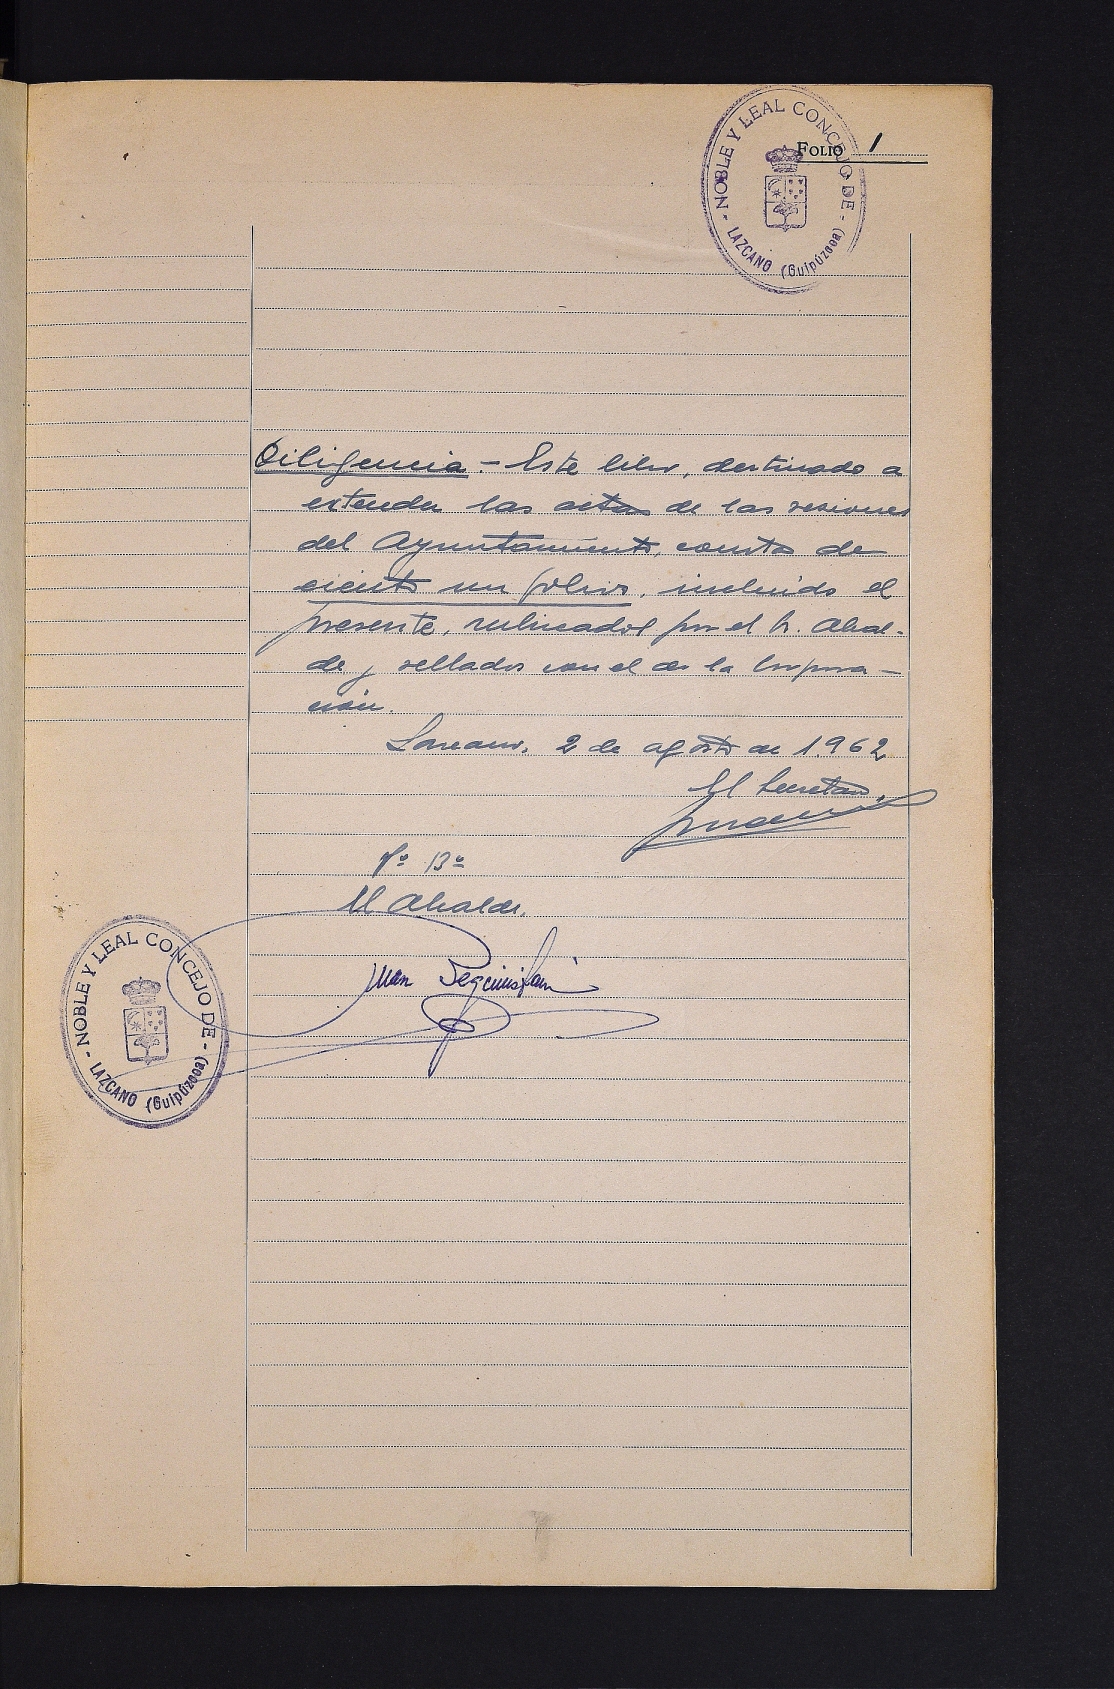 NOBLE Y LEAL CONCEJO DE
LAZCANO (Guipúzcoa)
FOLIO 1
Diligencia - Este libro, destinado a
extender las actas de las sesiones
del Ayuntamiento, consta de
ciento un folios, incluido el
presente, rubricados por el Sr. Alcal-
de y sellados con el de la Corpora-
ción.
Lazcano, 2 de agosto de 1.962
El Secretario,
Vº Bº
El Alcalde,
NOBLE Y LEAL CONCEJO DE
LAZCANO (Guipúzcoa)
Juan